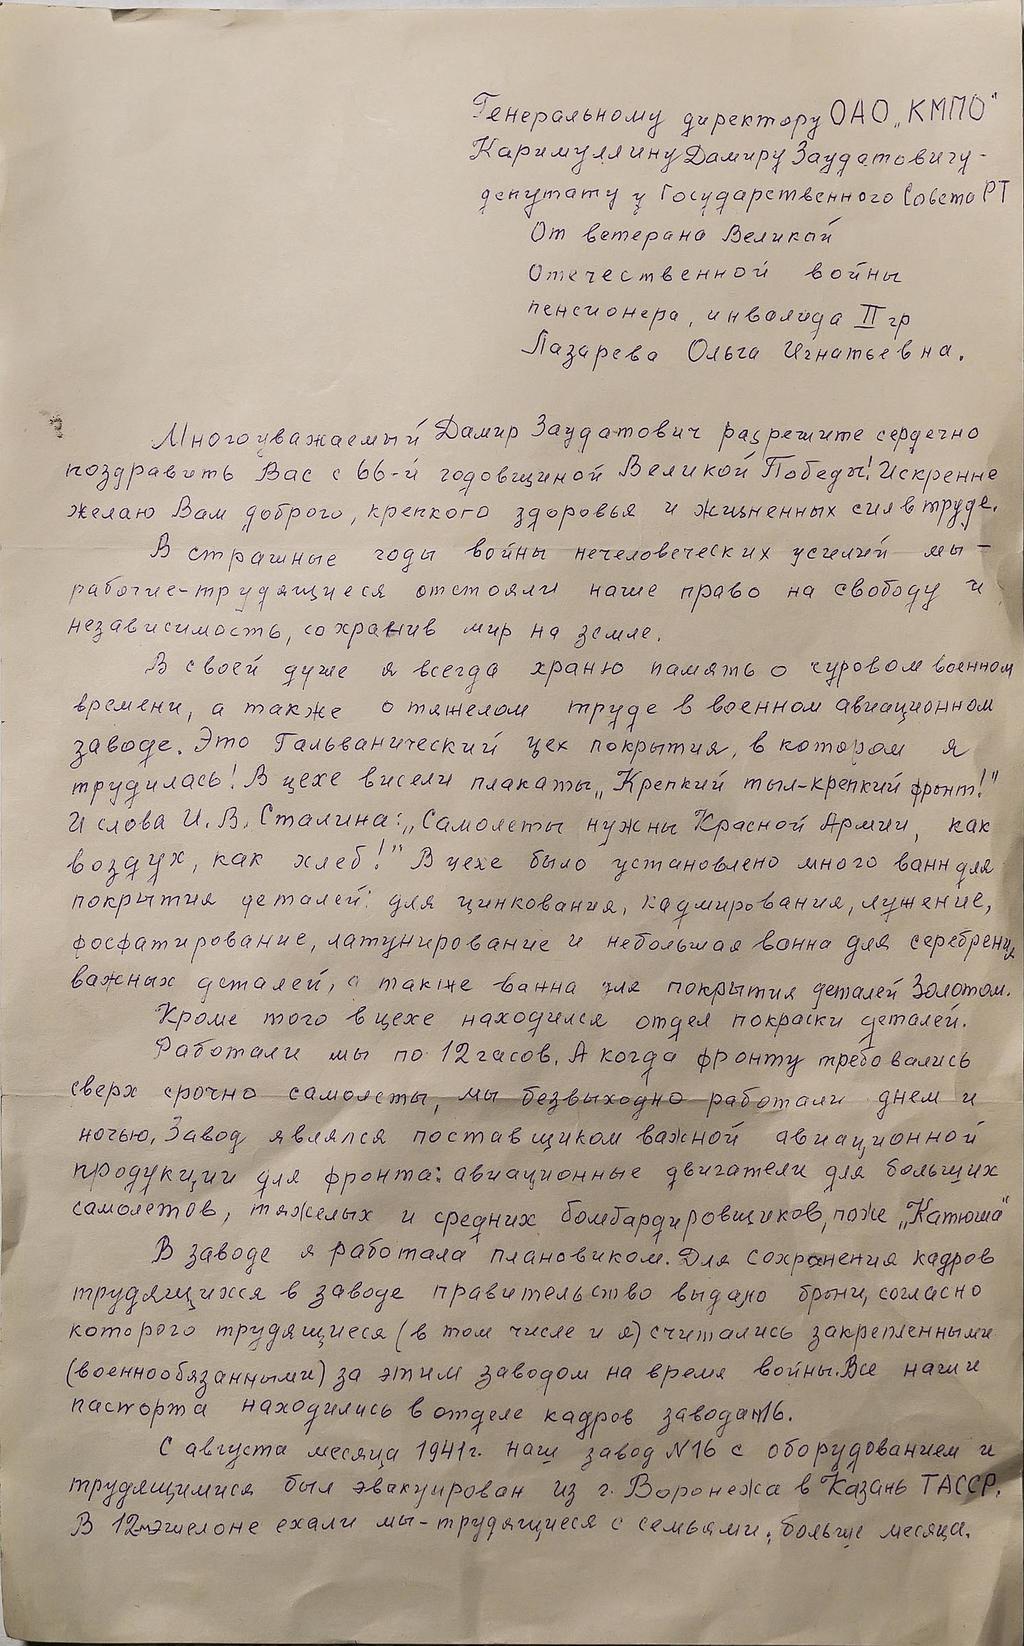 Генеральному директору ОАО „КМПО"
Каримуллину Дамиру Заудатовичу -
депутату у Государственного Совета РТ
От ветерана Великой
Отечественной войны
пенсионера, инвалида II гр
Лазарева Ольга Игнатьевна.
Многоуважаемый Дамир Заудатович разрешите сердечно
поздравить Вас с 66-й годовщиной Великой Победы! Искренне
желаю Вам доброго, крепкого здоровья и жизненных сил в труде.
В страшные годы войны нечеловеческих усилий мы -
рабочие-трудящиеся отстояли наше право на свободу и
независимость, сохранив мир на земле.
В своей душе я всегда храню память о суровом военном
времени, а также о тяжелом труде в военном авиационном
заводе. Это Гальванический цех покрытия, в котором я
трудилась! В цехе висели плакаты „Крепкий тыл-крепкий фронт!"
И слова И. В. Сталина: „Самолеты нужны Красной Армии, как
воздух, как хлеб!" В цехе было установлено много ванн для
покрытия деталей: для цинкования, кадмирования, лужение,
фосфатирование, латунирование и небольшая ванна для серебрения
важных деталей, а также ванна для покрытия деталей Золотом.
Кроме того в цехе находился отдел покраски деталей.
Работали мы по 12 часов. А когда фронту требовались
сверх срочно самолеты, мы безвыходно работали днем и
ночью. Завод являлся поставщиком важной авиационной
продукции для фронта: авиационные двигатели для больших
самолетов, тяжелых и средних бомбардировщиков, позже „Катюша"
В заводе я работала плановиком. Для сохранения кадров
трудящихся в заводе правительство выдано брони, согласно
которого трудящиеся (в том числе и я) считались закрепленными
(военнообязанными) за этим заводом на время войны. Все наши
паспорта находились в отделе кадров завода №16.
С августа месяца 1941 г. наш завод N16 с оборудованием и
трудящимися был эвакуирован из г. Воронежа в Казань ТАССР.
В 12м эшелоне ехали мы-трудящиеся с семьями, больше месяца.